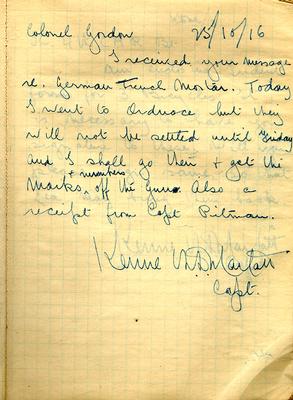 Colonel Gordon 25/10/16
I received your message
re. German Trench Mortar. Today
I went to Ordnace but they
will not be settled until Friday
and I shall go then + get the
Marks + numbers off the guns. Also a
receipt from Capt Pitman.
Capt.